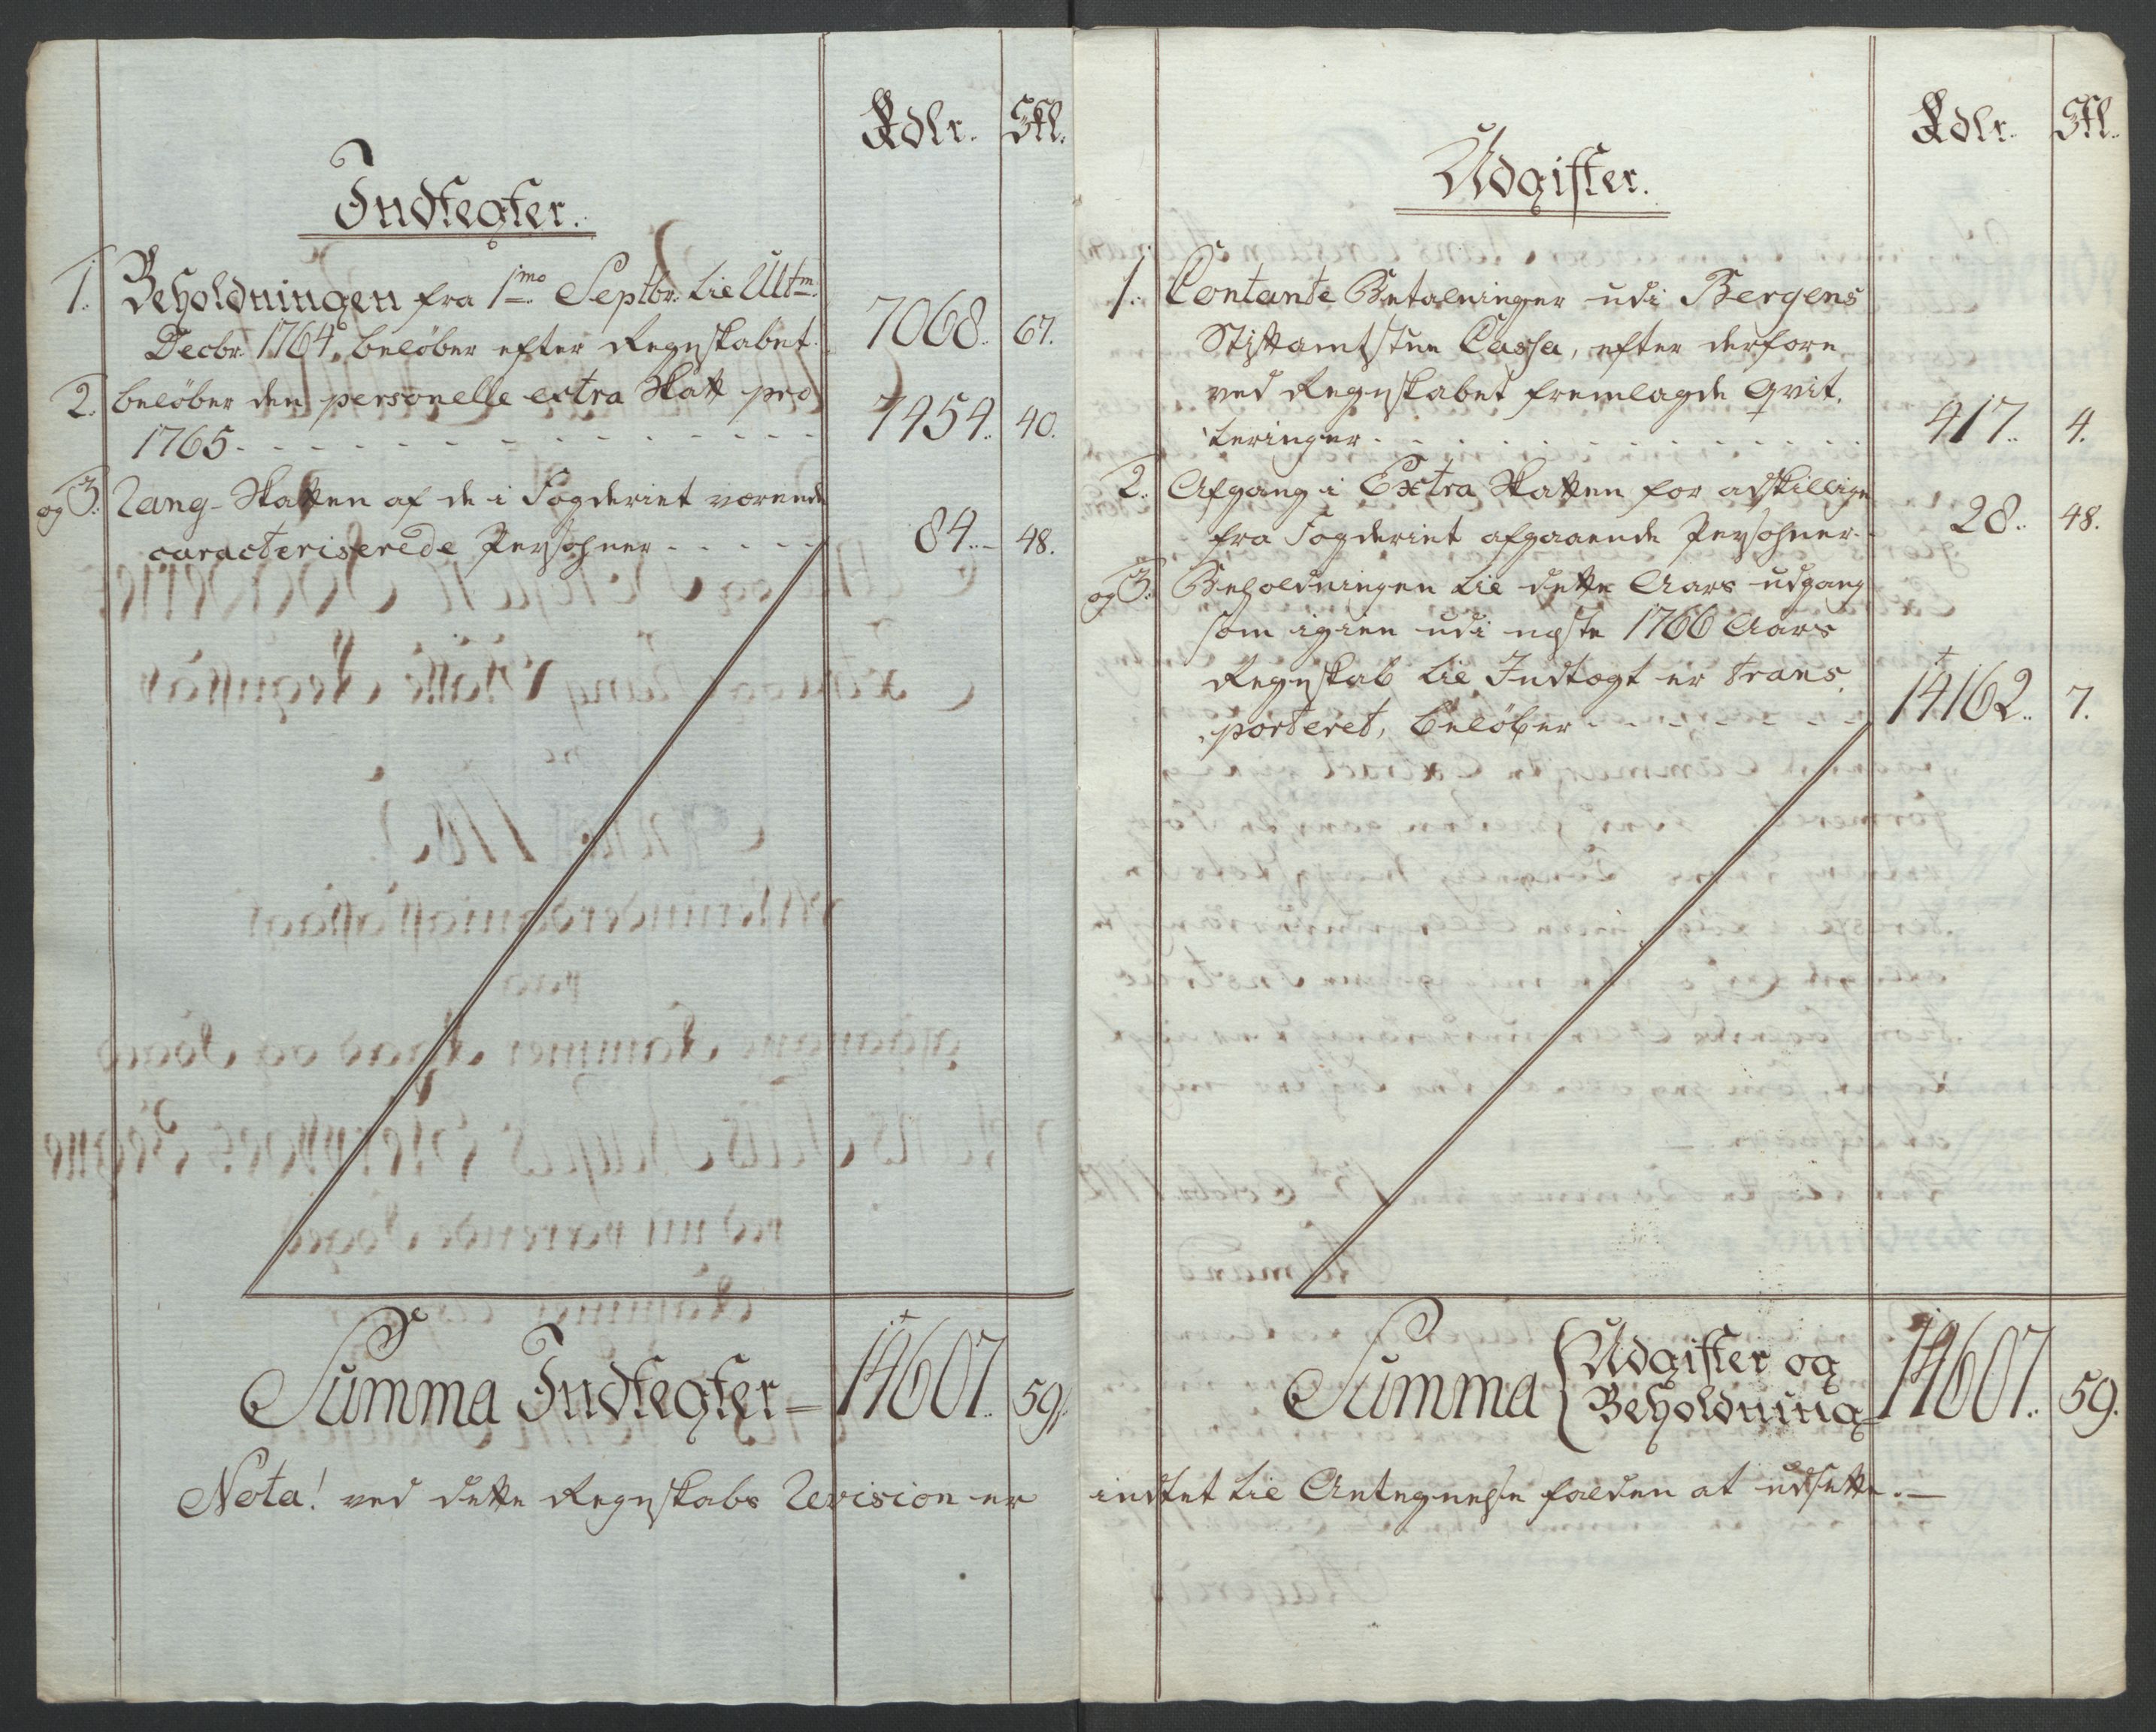 Rdlr. Skl.
Indtegter.
1. Beholdningen fra 1mo Septbr. til Ultm.
Decbr. 1764. beløber efter Regnskabet. 7068.. 67.
2. beløber den personelle extra Skatt pro
1765 - - - 7454.. 40.
og 3. Rang-Skatten af de i Fogderiet værende
caracteriserede Persohner - - - 84.. 48.
Summa Indtegter — 14607.. 59.
Nota! ved dette Regnskabs Revision er
Rdlr. Skl.
Udgifter.
1. Contante Betalninger udi Bergens
Stiftamtstue Cassa, efter derfore
ved Regnskabet fremlagde Qvit-
teringer - - - 417.. 4.
2. Afgang i Extra Skatten for adskillige
fra Fogderiet afgaaende Persohner. 28.. 48.
og 3. Beholdningen til dette Aars udgang
som igien udi næste 1766 Aars
Regnskab til Indtægt er trans-
porteret, beløber - - - 14162.. 7.
Summa { Udgifter og
Beholdning — 14607.. 59.
indtet til Antegnelse falden at udsætte. —